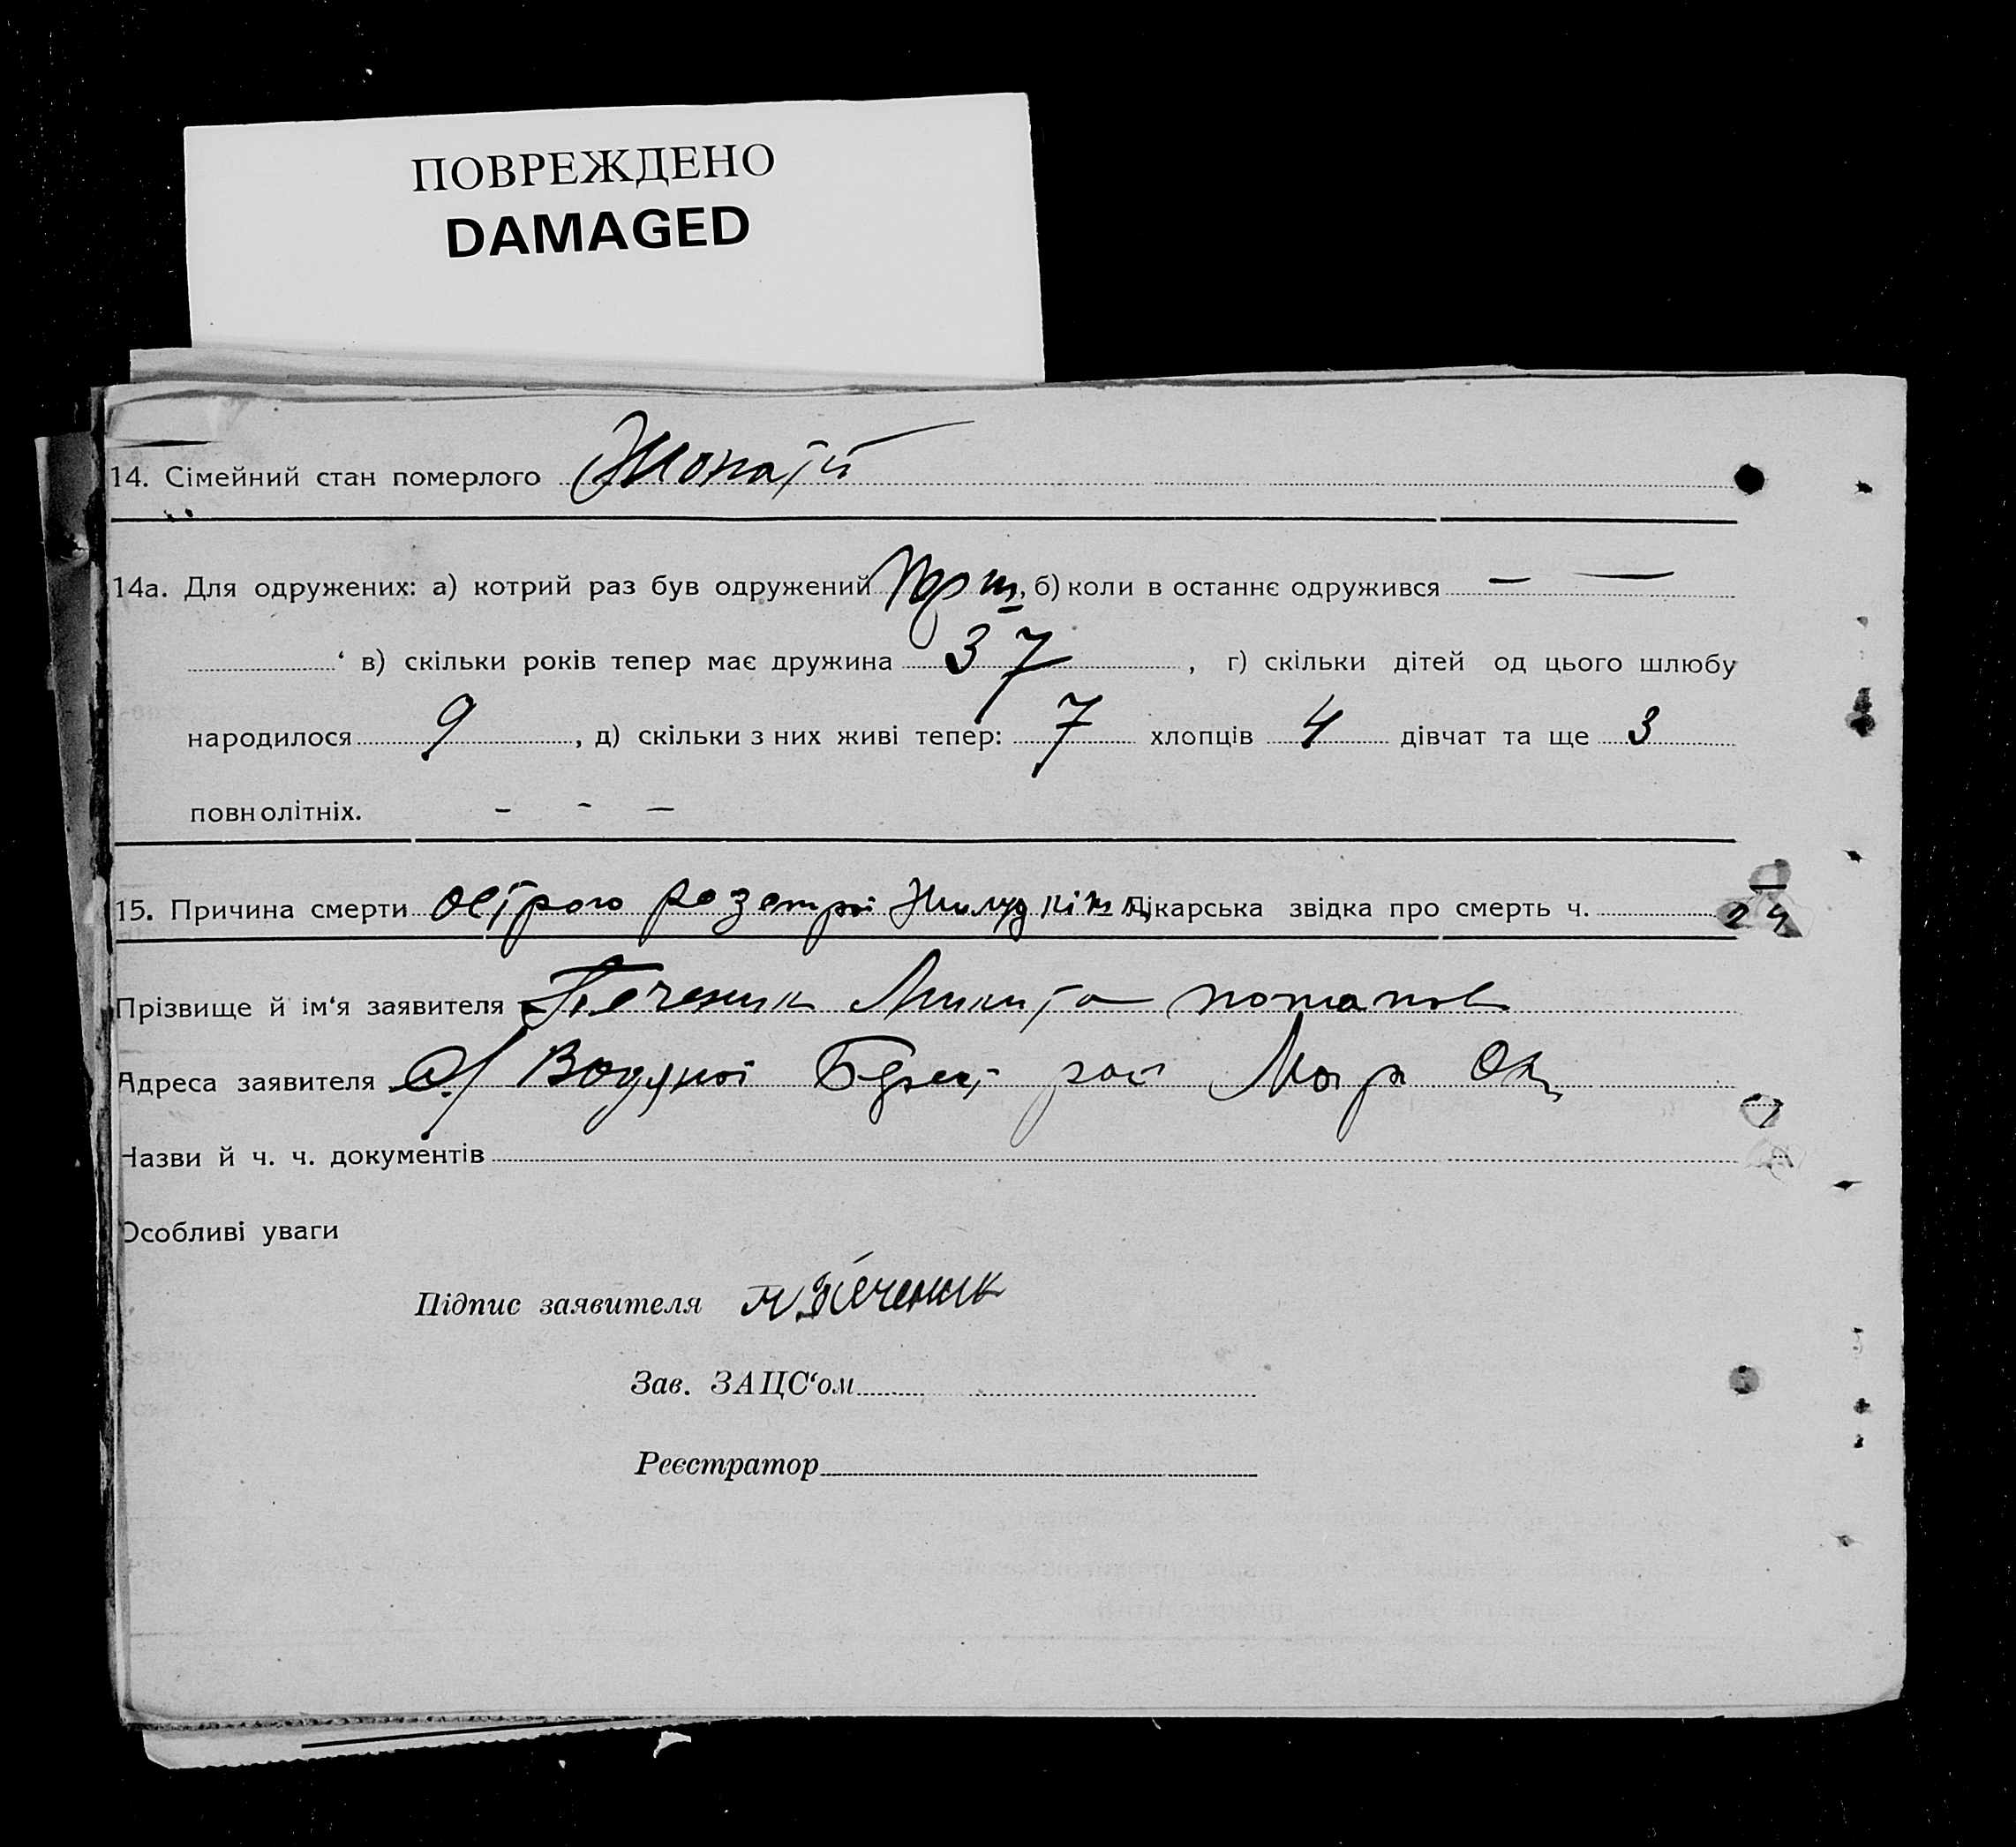 ПОВРЕЖДЕНО
DAMAGED
14. Сімейний стан померлого Жонатй
14а. Для одружених: а) котрий раз був одружений перш, б) коли в останнє одружився — —
‘ в) скільки років тепер має дружина 37, г) скільки дітей од цього шлюбу
народилося 9, д) скільки з них живі тепер: 7 хлопців 4 дівчат та ще 3
повнолітніх. - - -
15. Причина смерти острого розстрой Лікарська звідка про смерть ч. 24
Прізвище й ім‘я заявителя Печеник Микита потапов
Адреса заявителя с/ Водяної рай
Назви й ч. ч. документів
Особливі уваги
Підпис заявителя Печеник
Зав. ЗАЦС‘ом
Реєстратор